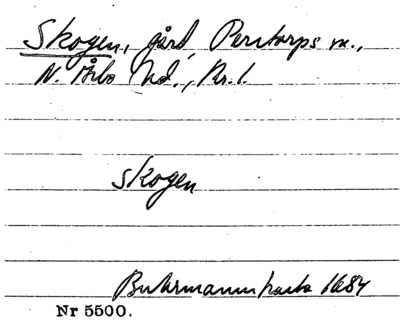 Skogen, gård, Perstorps sn.,
N. Åsbo hd., Kr. l.
Skogen
Buhrmanns karta 1684
Nr 5500.